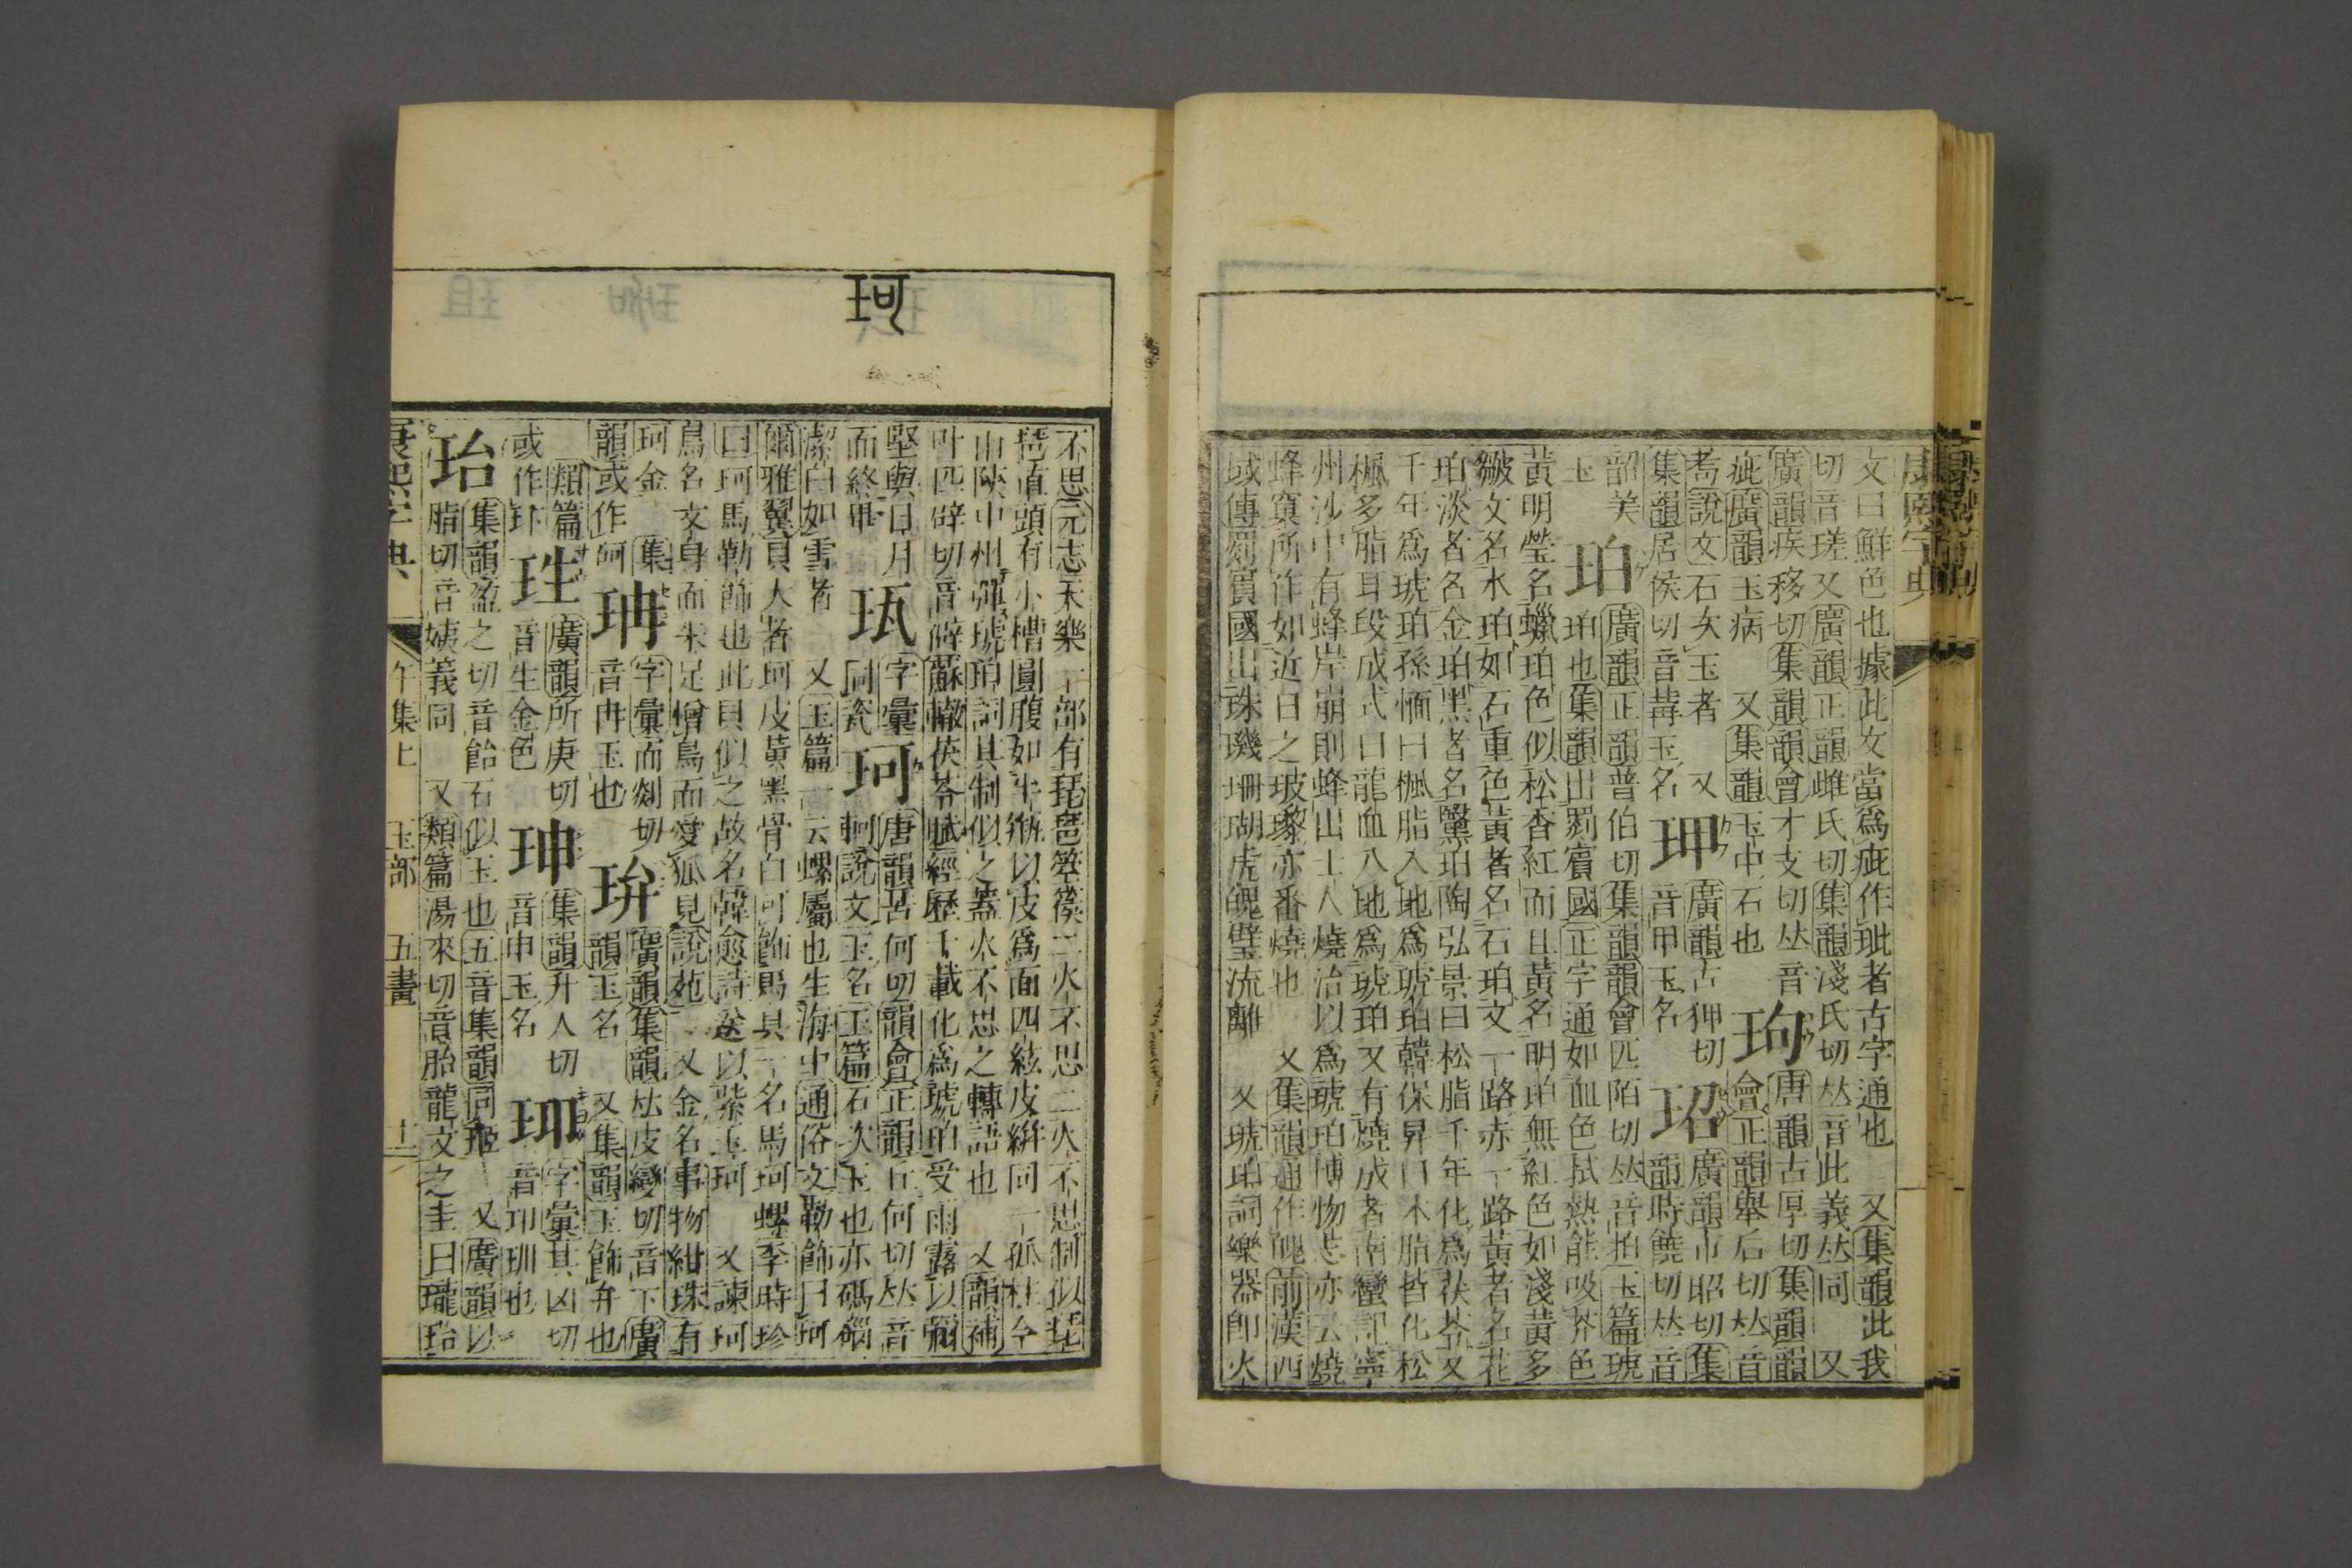 文曰鮮色也據此文當爲疵作玼者古字通也　又集韻此我
切音瑳又廣韻正韻雌氏切集韻淺氏切𠀤音此義𠀤同　又
廣韻疾移切集韻韻會才支切𠀤音
疵廣韻玉病　又集韻玉中石也
珣
唐韻古厚切集韻韻
會正韻舉后切𠀤音
耇說文石次玉者　又
集韻居侯切音冓玉名
玾
廣韻古狎切
音甲玉名
玿
廣韻市昭切集
韻時饒切𠀤音
韶美
玉
珀
廣韻正韻普伯切集韻韻會匹陌切𠀤音拍玉篇琥
珀也集韻出罽賓國正字通如血色拭熱能吸芥色
黃明瑩名蠟珀色似松香紅而且黃名明珀無紅色如淺黃多
皺文名水珀如石重色黃者名石珀文一路赤一路黃者名花
珀淡者名金珀黑者名黳珀陶弘景曰松脂千年化爲茯苓又
千年爲琥珀孫愐曰楓脂入地爲琥珀韓保昇曰木脂皆化松
楓多脂耳段成式曰龍血入地爲琥珀又有燒成者南蠻記寧
州沙中有蜂岸崩則蜂出土人燒治以爲琥珀博物志亦云燒
蜂窠所作如近日之玻瓈亦番燒也　又集韻通作魄前漢西
域傳罽賓國出珠璣珊瑚虎魄璧流離　又琥珀詞樂器卽火
不思元志天樂一部有琵琶箜篌二火不思二火不思制似琵
琶直頭有小槽圓腹如半缾以皮爲面四絃皮絣同一孤柱今
山陝中州彈琥珀詞其制似之蓋火不思之轉語也　又韻補
叶匹辟切音僻蘇轍茯苓賦經歷千載化爲琥珀受雨露以彌
堅與日月
而終畢
珁
字彙
同瓷
珂
唐韻苦何切韻會正韻丘何切𠀤音
軻說文玉名玉篇石次玉也亦碼碯
潔白如雪者　又玉篇一云螺屬也生海中通俗文勒飾曰珂
爾雅翼貝大者珂皮黃黑骨白可飾馬具一名馬珂螺李時珍
曰珂馬勒飾也此貝似之故名韓愈詩送以紫玉珂　又諫珂
鳥名文身而朱足憎鳥而愛狐見說苑　又金名事物紺珠有
珂金　集
韻或作砢
珃
字彙而剡切
音冉玉也
玣
廣韻集韻𠀤皮變切音卞廣
韻玉名　又集韻玉飾弁也
類篇
或作㺹
珄
廣韻所庚切
音生金色
珅
集韻升人切
音申玉名
𤤌
字彙其凶切
音卭玔也
珆
集韻盈之切音飴石似玉也五音集韻同瓵　又廣韻以
脂切音姨義同　又類篇湯來切音胎龍文之圭曰瓏珆
康熙字典
午集上
玉部
五畫
十二
珂
康熙字典